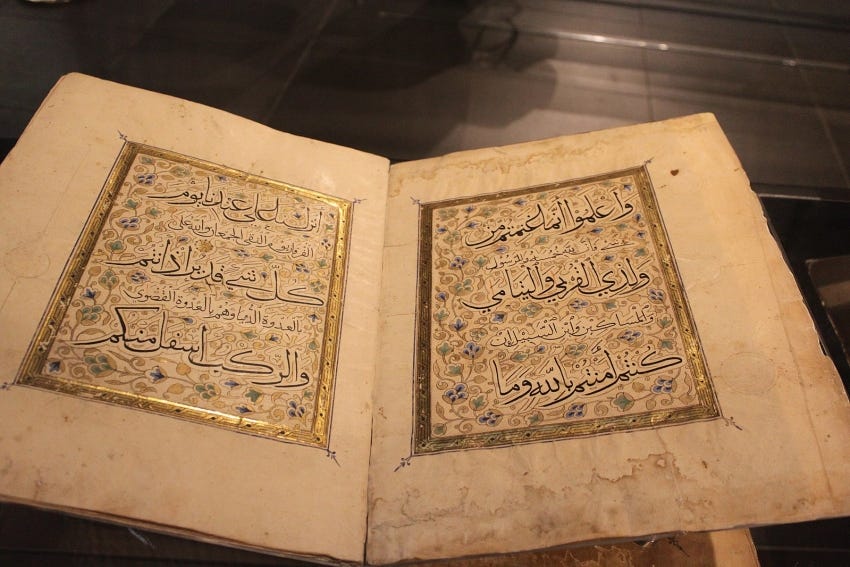 وَاعْلَمُوا أَنَّمَا غَنِمْتُم مِن
شيء فأن لله خمسه وللرسول
ولذي القربي واليتامي
والمساكين وابن السبيل إن
كُنْتُمْ آمَنْتُمْ بِاللَّهِ وَمَا
أنزلنا علي عبدنا يوم
الفرقان يوم التقي الجمعان والله علي
كل شيء قدير إذ أنتم
بالعدوة الدنيا وهم بالعدوة القصوي
والركب أسفل منكم